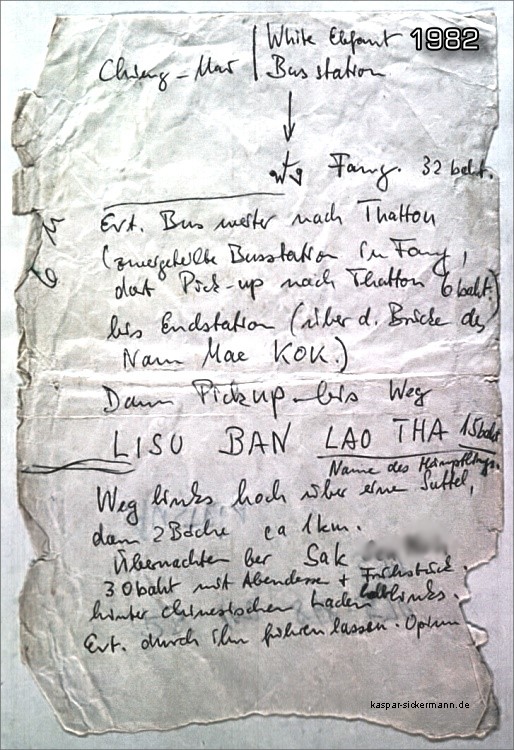 1982
White Elefant
Chieng-Mai Bus station
Fang. 32 baht.
Evt. Bus weiter nach Thatton
(zweigeteilte Busstation in Fang,
dort Pick-up nach Thatton 6 baht)
bis Endstation (über d. Brücke des
Nam Mae KOK.)
Dann Pickup bis Weg
LISU BAN LAO THA 15 baht
Name des Häuptlings.
Weg links hoch über eine Sattel,
dann 2 Bäche ca 1km.
Übernachten bei Sak
30baht mit Abendessen + Frühstück.
hinter chinesischen Laden links.
Evt. durch ihn führen lassen. Opium
kaspar-sickermann.de